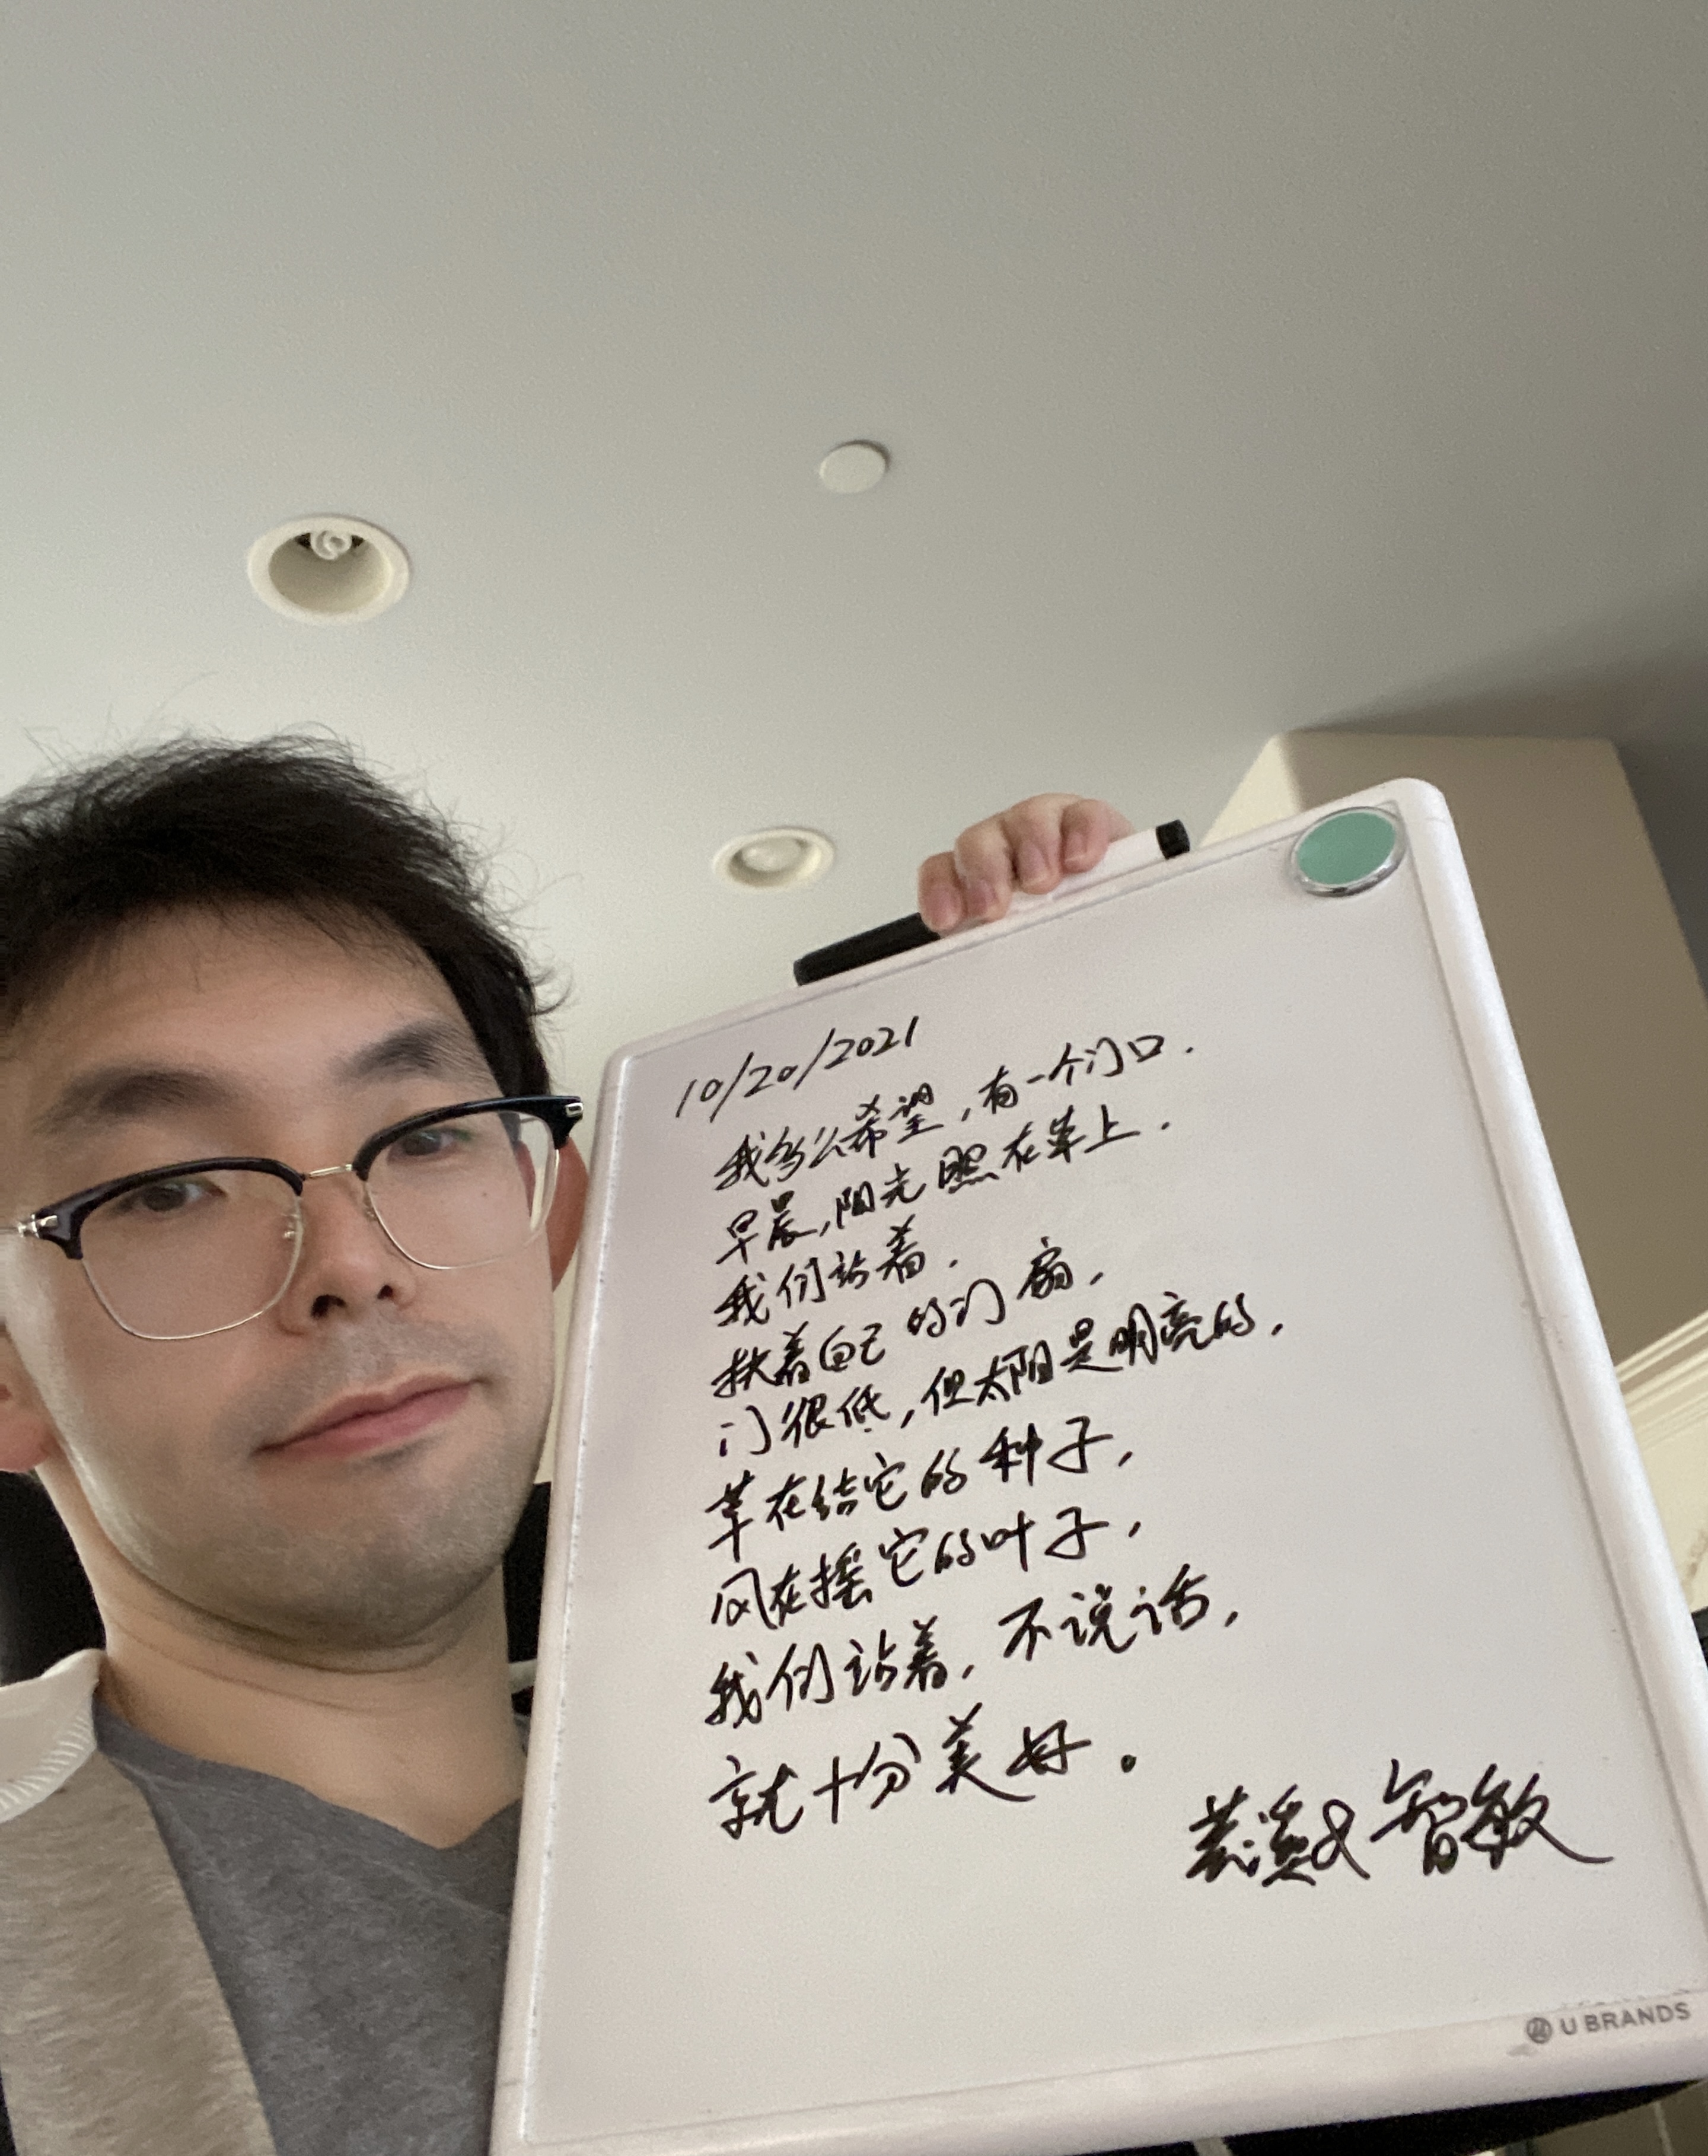 10/20/2021
我多么希望,有一个门口.
早晨,阳光照在草上.
我们站着.
扶着自己的门扇,
门很低,但太阳是明亮的,
草在结它的种子,
风在摇它的叶子,
我们站着,不说话,
就十分美好。
智敏
U BRANDS